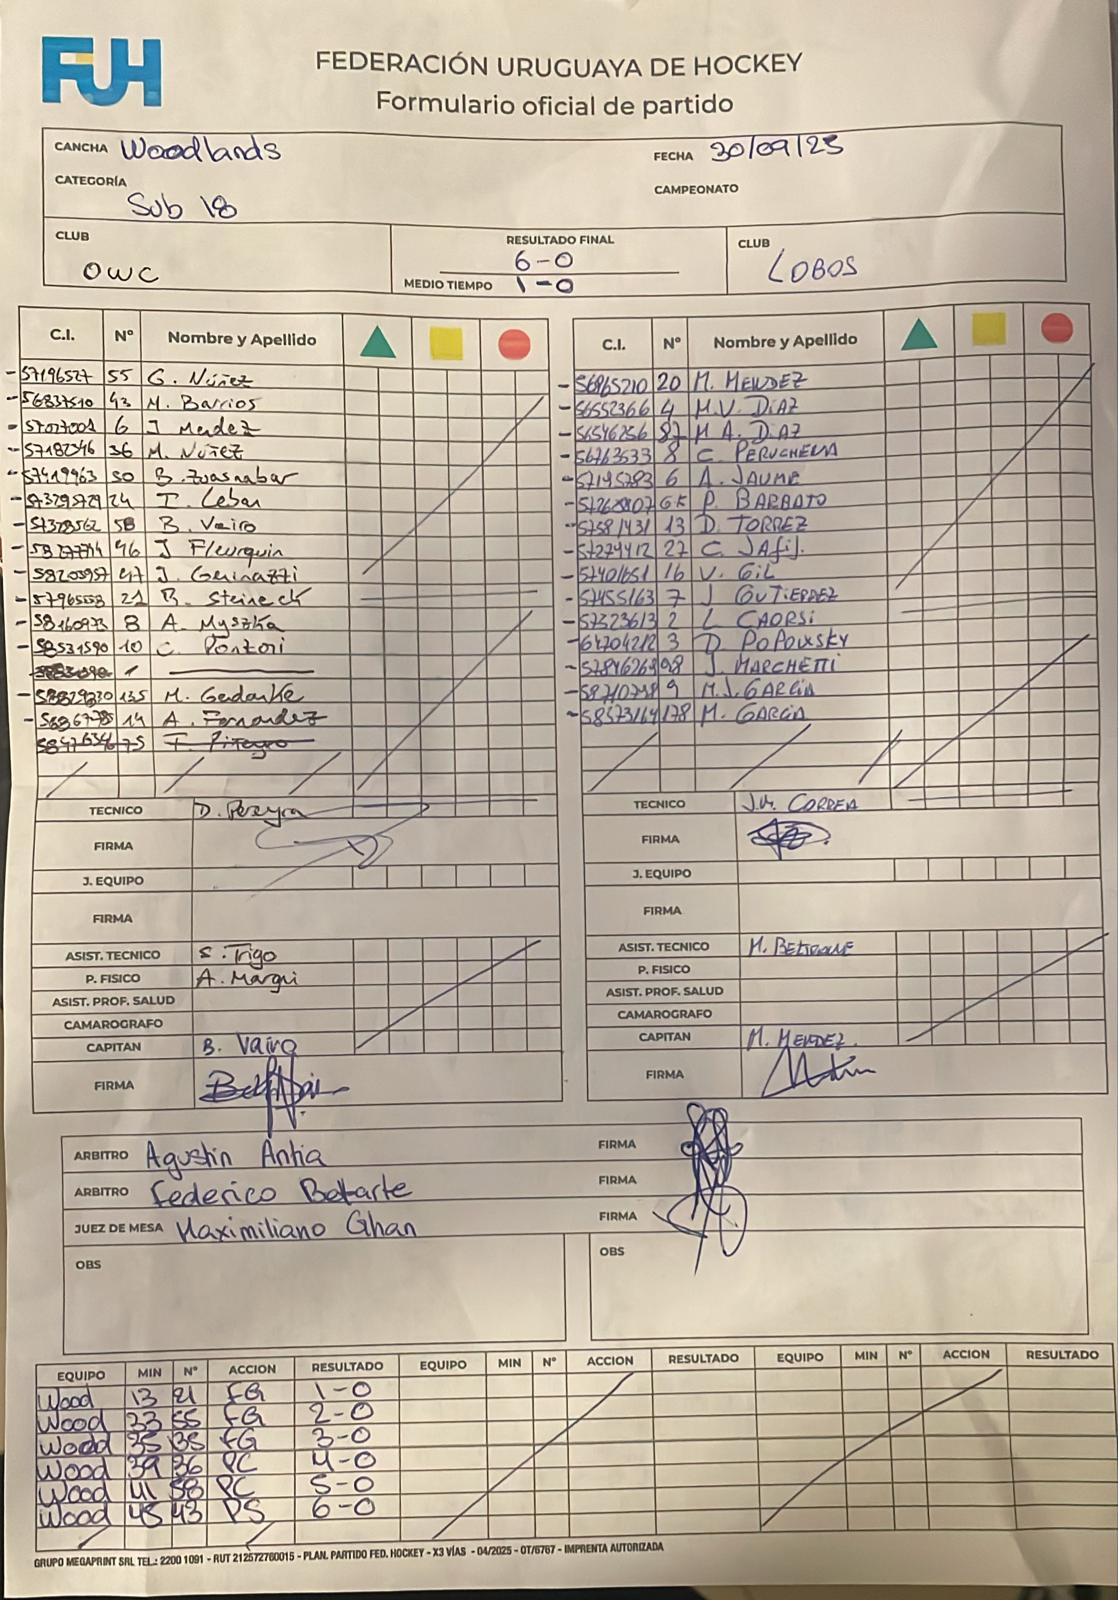 FUH
FEDERACIÓN URUGUAYA DE HOCKEY
Formulario oficial de partido
CANCHA Woodlands
FECHA 30/09/25
CATEGORÍA Sub 18
CAMPEONATO
CLUB OWC
RESULTADO FINAL 6-0
MEDIO TIEMPO 1-0
CLUB LOBOS
C.I. Nº Nombre y Apellido
57196527 55 G. Núñez
56837510 43 M. Barrios
6 J Mendez
57182346 36 M. Núñez
57419963 50 B. Zuasnabar
57329729 24 I. Leban
57378562 58 B. Vairo
46 J Fleurquin
58203957 47 J. Guinazzi
5796558 21 B. Steineck
58160973 8 A. Myszka
58531590 10 C. Pontori
1
58829230 135 M. Gedanke
5686778 14 A. Fernandez
75 F. Pitagro
TECNICO D. Pereyra
FIRMA
J. EQUIPO
FIRMA
ASIST. TECNICO S. Trigo
P. FISICO A. Margui
ASIST. PROF. SALUD
CAMAROGRAFO
CAPITAN B. Vairo
FIRMA
C.I. Nº Nombre y Apellido
56865210 20 M. MENDEZ
56552366 4 M.V. DIAZ
56546256 87 M A. DIAZ
56763533 8 C. PERUCHENA
57195783 6 A. JAUME
GK P. BARBATO
57581431 13 D. TORREZ
57279412 27 C. JAfif.
57401651 16 V. GiL
57455163 7 J GUTIERREZ
57323613 2 L CAORSi
64704212 3 D. POPOVSKY
98 J. MARCHETTI
9 M.J. GARCIA
58573164 178 M. GARCIA
TECNICO J.M. CORREA
FIRMA
J. EQUIPO
FIRMA
ASIST. TECNICO M. BELTRAME
P. FISICO
ASIST. PROF. SALUD
CAMAROGRAFO
CAPITAN M. MENDEZ.
FIRMA
ARBITRO Agustin Antia FIRMA
ARBITRO Federico Betarte FIRMA
JUEZ DE MESA Maximiliano Ghan FIRMA
OBS
OBS
EQUIPO MIN Nº ACCION RESULTADO EQUIPO MIN Nº ACCION RESULTADO EQUIPO MIN Nº ACCION RESULTADO
Wood 13 21 FG 1-0
Wood 33 55 FG 2-0
Wood 35 135 FG 3-0
Wood 39 36 PC 4-0
Wood 41 58 PC 5-0
Wood 45 43 PS 6-0
GRUPO MEGAPRINT SRL TEL.: 2200 1091 - RUT 212572760015 - PLAN. PARTIDO FED. HOCKEY - X3 VÍAS - 04/2025 - OT/6767 - IMPRENTA AUTORIZADA